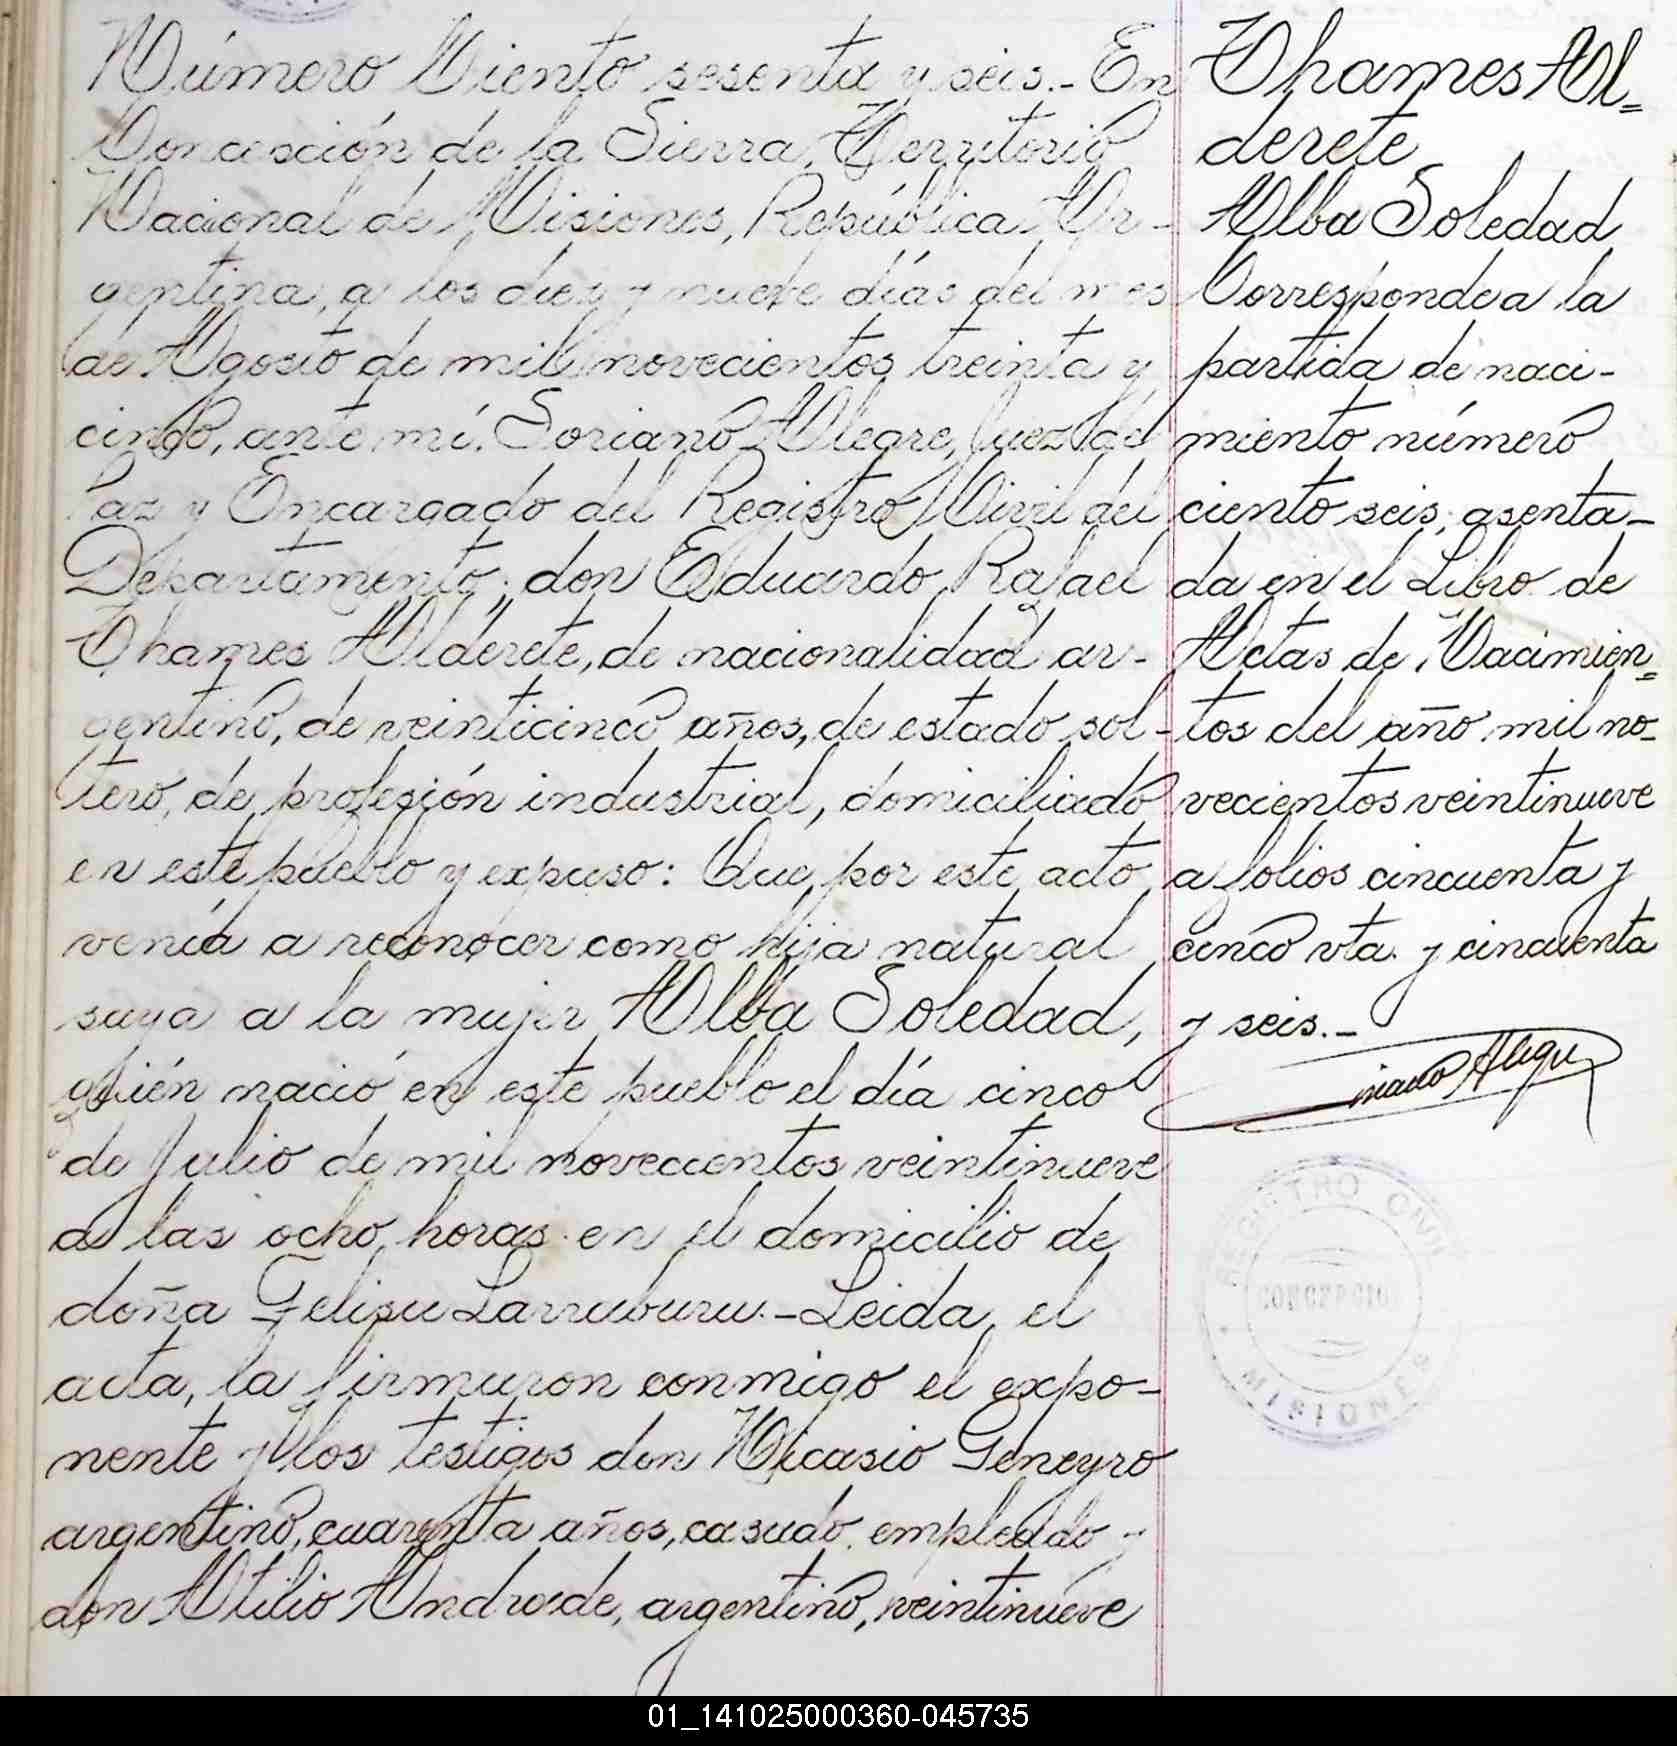 Número Ciento sesenta y seis.- En
Concepción de la Sierra, Territorio
Nacional de Misiones, República Ar-
gentina, a los diez y nueve días del mes
de Agosto de mil novecientos treinta y
cinco, ante mí, Soriano Alegre, Juez de
Paz y Encargado del Registro Civil del
Departamento; don Eduardo Rafael
Thames Alderete, de nacionalidad ar-
gentino, de veinticinco años, de estado sol-
tero, de profesión industrial, domiciliado
en este pueblo y expuso: Que por este acto
venía a reconocer como hija natural
suya a la mujer Alba Soledad,
quién nació en este pueblo el día cinco
de Julio de mil novecientos veintinueve
a las ocho horas en el domicilio de
doña Felisa Larruburu.-Leida el
acta, la firmaron conmigo el expo-
nente y los testigos don Nicasio Geneyro
argentino, cuarenta años, casado, empleado y
don Atilio Andrade, argentino, veintinueve
Thames Al=
derete
Alba Soledad
Corresponde a la
partida de naci-
miento número
ciento seis, asenta-
da en el Libro de
Actas de Nacimien=
tos del año mil no-
vecientos veintinueve
a folios cincuenta y
cinco vta. y cincuenta
y seis.-
REGISTRO CIVIL
CONCEPCIO
MISIONES
01_141025000360-045735